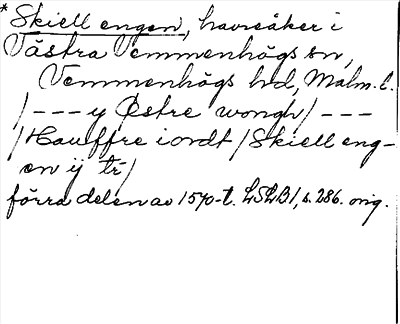 * Skiell engen, havreåker i
Västra Vemmenhögs sn,
Vemmenhögs hd, Malm. l.
/--- y Østre wongh/ ---
/Hauffre iordt/Skiell eng-
en ij tr/
förra delen av 1570-t. LSLB1, s. 286. orig.